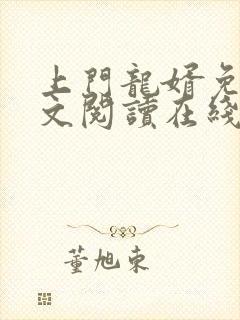 上門龍婿免
文閱讀在綫
董旭東